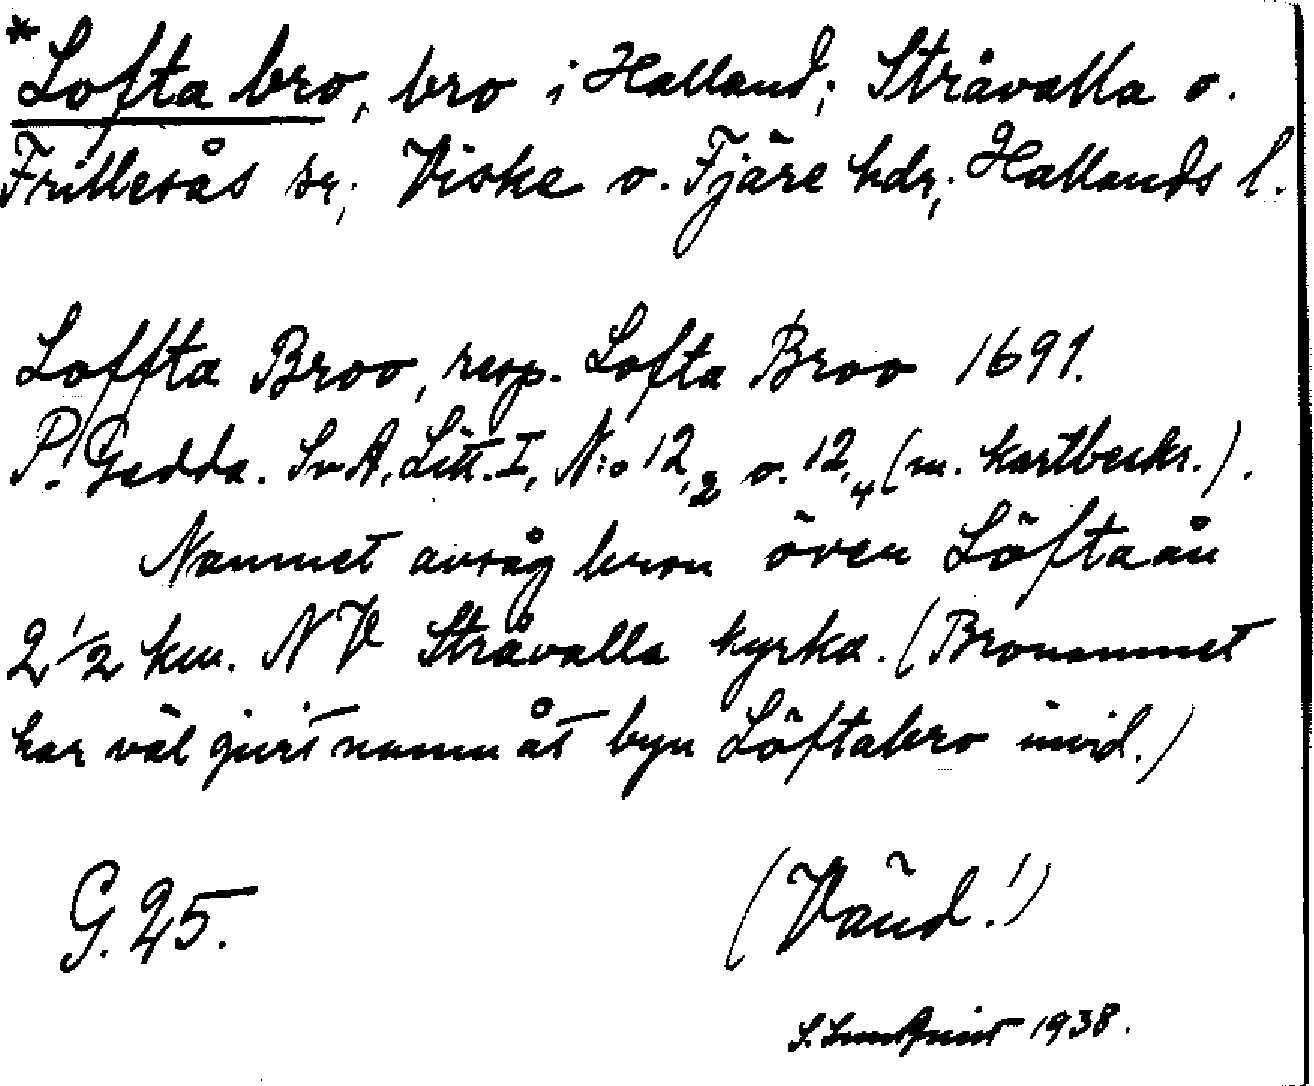 *Lofta bro, bro i Halland; Stråvalla o.
Frillesås sr; Viske o. Fjäre hdr; Hallands l.
Loffta Broo, resp. Lofta Broo 1691.
P. Gedda. SvA. Litt. I, N:o 12,2 o. 12,4 (m. kartbeckr.).
Namnet avsåg bron över Löftaån
2 1/2 km. NV Stråvalla kyrka. (Bronamnet
har väl givit namn åt byn Löftabro invid.)
G. 25.
(Vänd!)
1938.